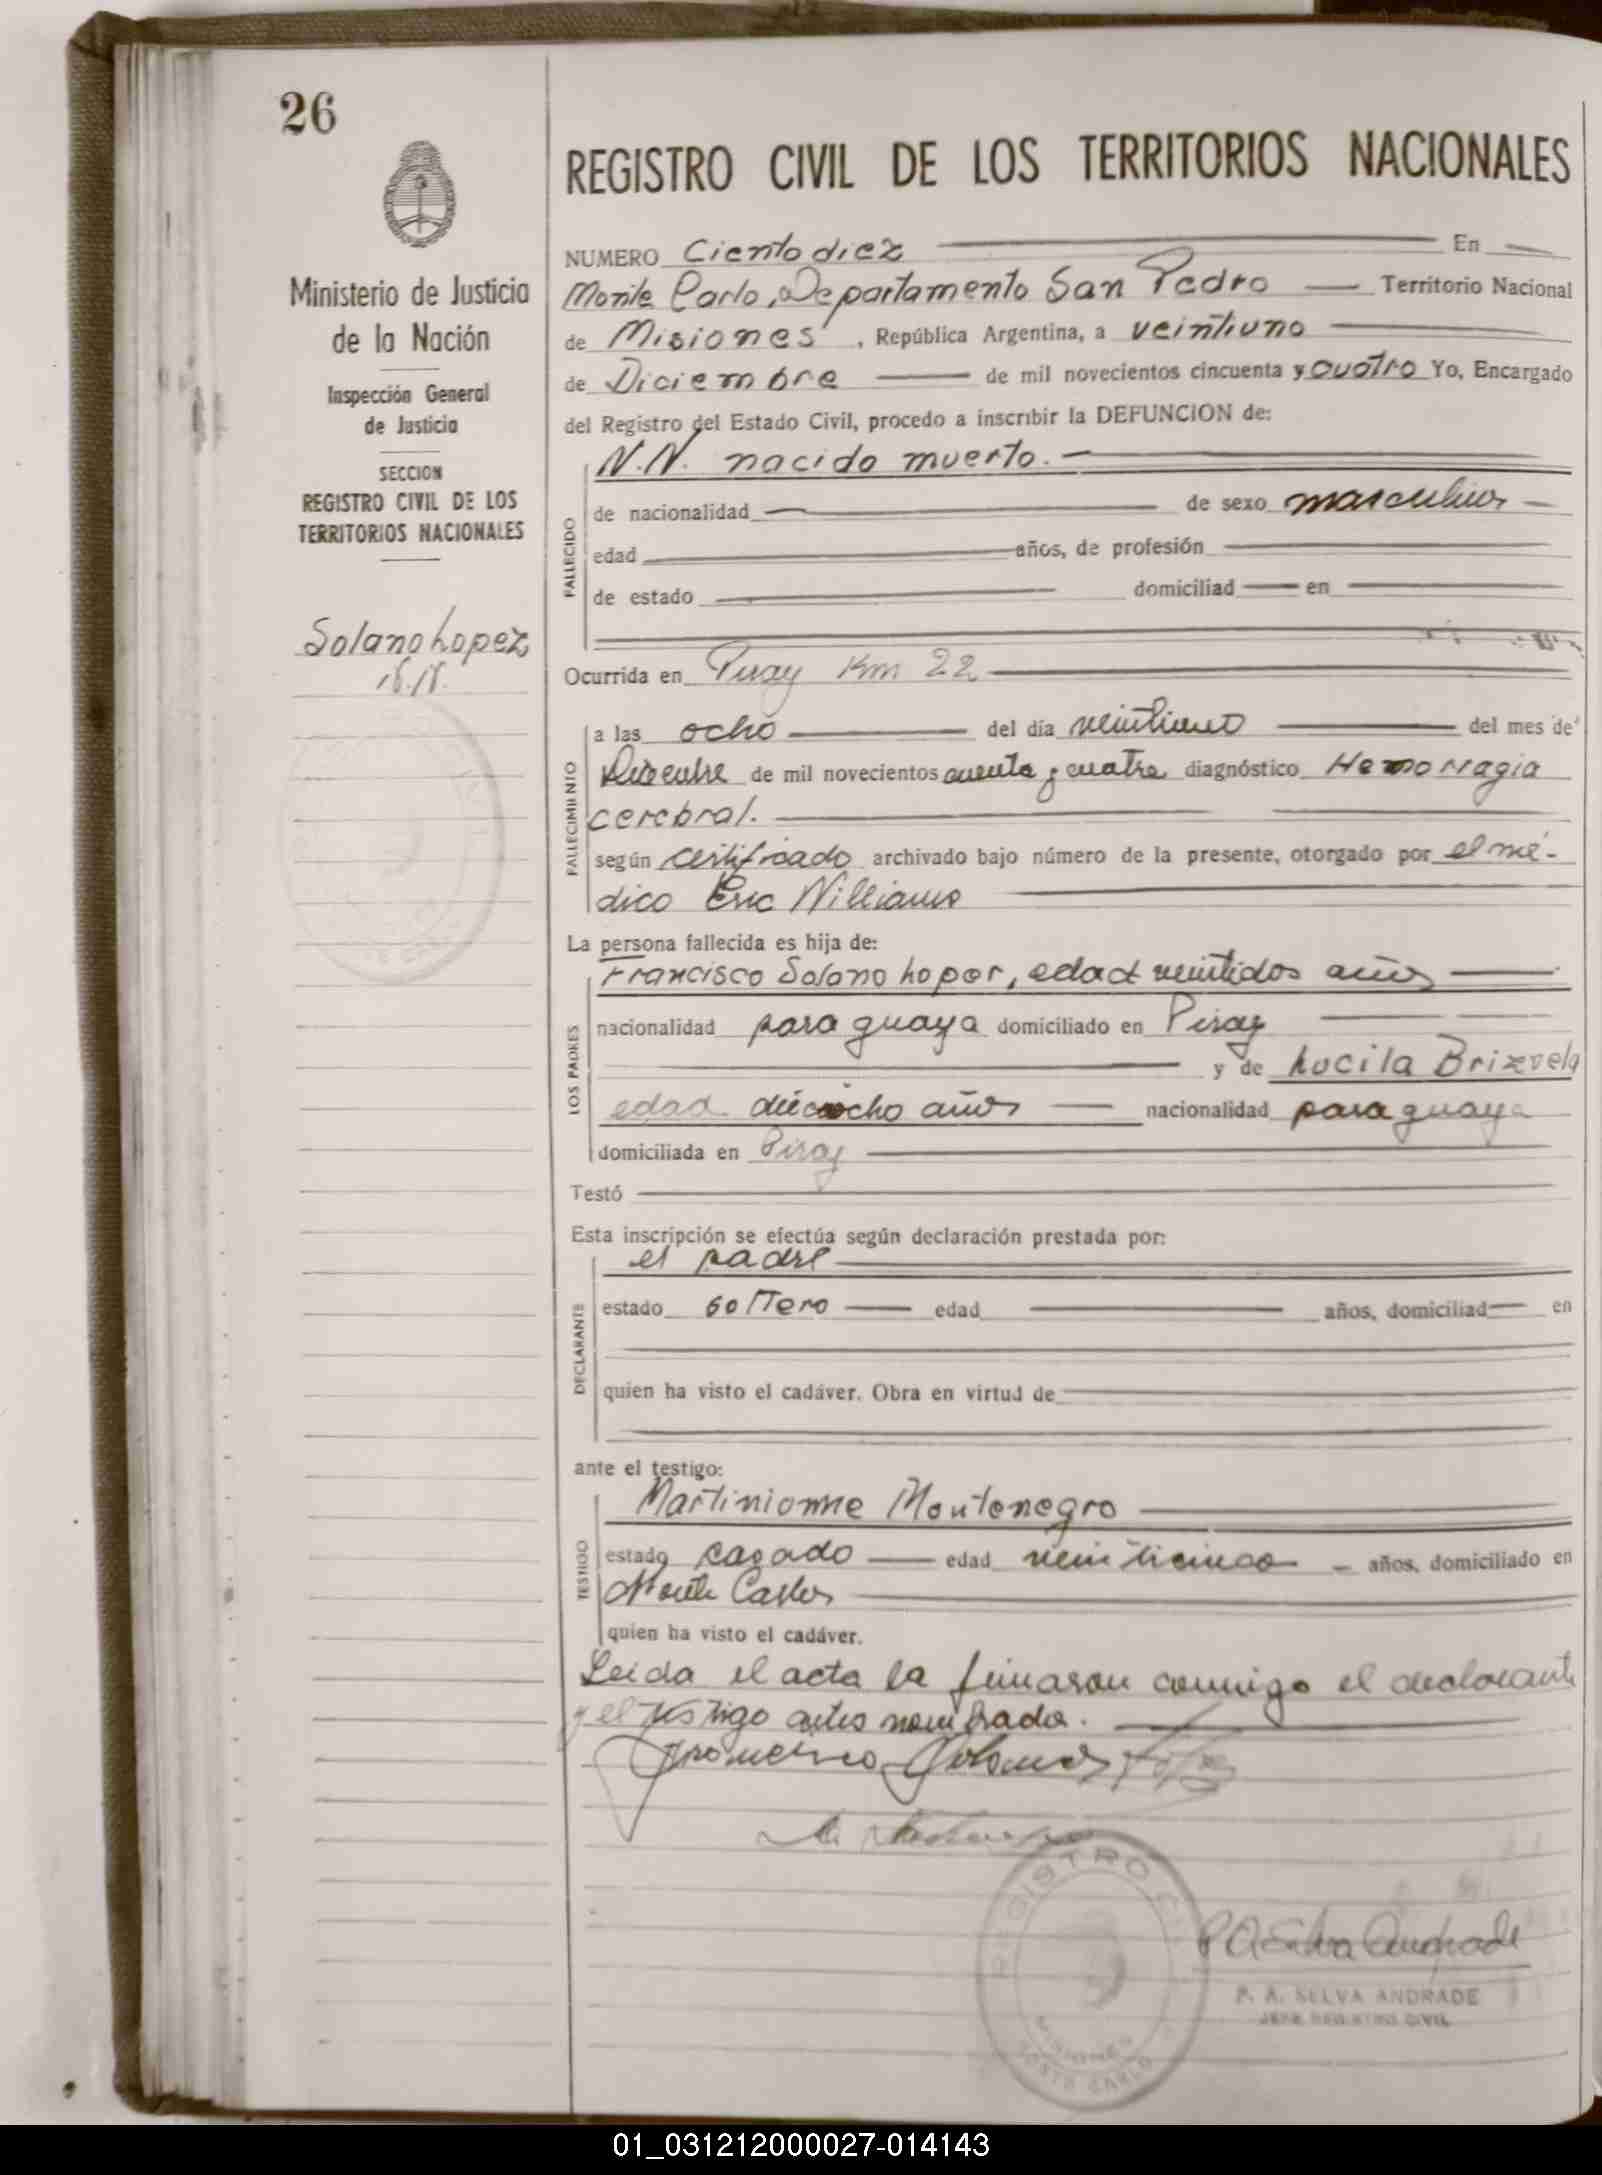 26
REGISTRO CIVIL DE LOS TERRITORIOS NACIONALES
Ministerio de Justicia
de la Nación
Inspección General
de Justicia
SECCION
REGISTRO CIVIL DE LOS
TERRITORIOS NACIONALES
Solano Lopez
NUMERO Ciento diez En
Monte Carlo, Departamento San Pedro Territorio Nacional
de Misiones, República Argentina, a veintiuno
de Diciembre de mil novecientos cincuenta y cuatro Yo, Encargado
del Registro del Estado Civil, procedo a inscribir la DEFUNCION de:
FALLECIDO
N.N. nacido muerto.
de nacionalidad de sexo masculino
edad años, de profesión
de estado domiciliad en
Ocurrida en Piray Km 22
FALLECIMIENTO
a las ocho del día veintiuno del mes de
Diciembre de mil novecientos cuenta y cuatro diagnóstico Hemorragia
cerebral.
según certificado archivado bajo número de la presente, otorgado por el mé-
dico Eric Williams
La persona fallecida es hija de:
LOS PADRES
Francisco Solano Lopez, edad veintidos años
nacionalidad paraguaya domiciliado en Piray
y de Lucila Brizuela
edad dieciocho años nacionalidad paraguaya
domiciliada en Piray
Testó
Esta inscripción se efectúa según declaración prestada por:
DECLARANTE
el padre
estado soltero edad años, domiciliad en
quien ha visto el cadáver. Obra en virtud de
ante el testigo:
TESTIGO
Martinionne Montenegro
estado casado edad veinticinco años, domiciliado en
Monte Carlos
quien ha visto el cadáver.
Leida el acta la firmaron conmigo el declarante
y el testigo antes nombrado.
Francisco Solano
REGISTRO CIVIL
MISIONES
MONTE CARLO
P A Selva Andrade
P. A. SELVA ANDRADE
JEFE REGISTRO CIVIL
01_031212000027-014143